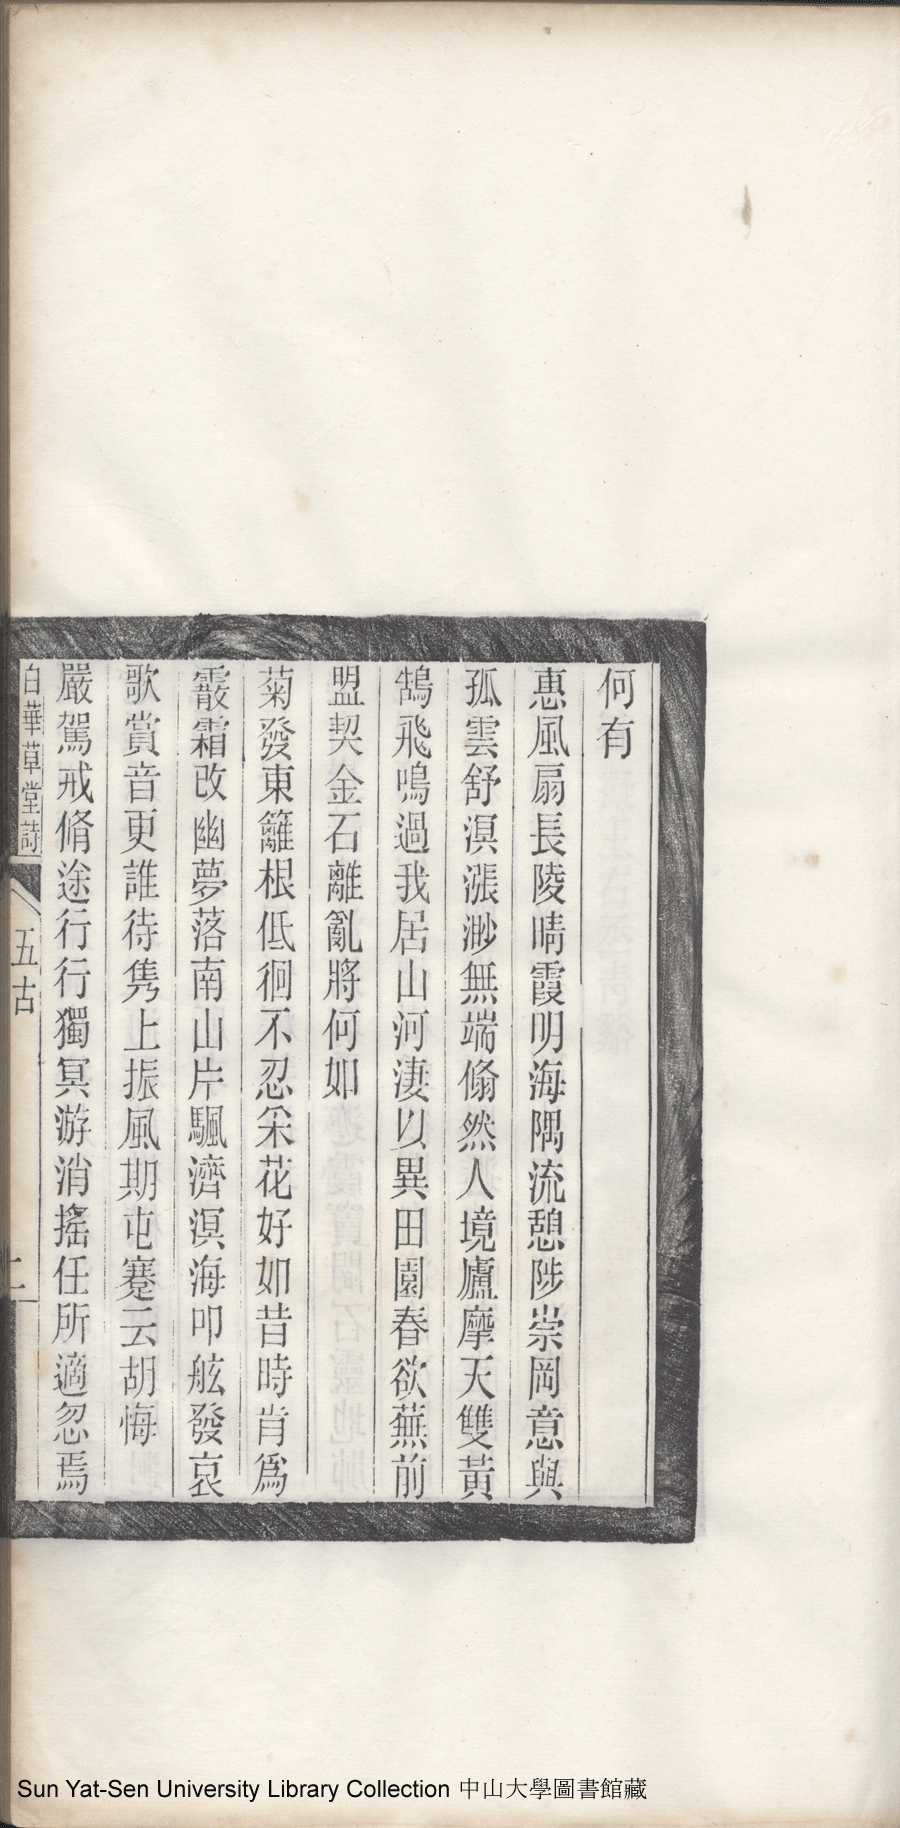 何有
惠風扇長陵晴霞明海隅流憩陟崇岡意與
孤雲舒溟漲渺無端翛然人境廬摩天雙黃
鵠飛鳴過我居山河淒以異田園春欲蕪前
盟契金石離亂將何如
菊發東籬根低徊不忍采花好如昔時肯爲
霰霜改幽夢落南山片颿濟溟海叩舷發哀
歌賞音更誰待雋上振風期屯蹇云胡悔
嚴駕戒脩途行行獨冥游消搖任所適忽焉
白華草堂詩 五古 二
Sun Yat-Sen University Library Collection 中山大學圖書館藏